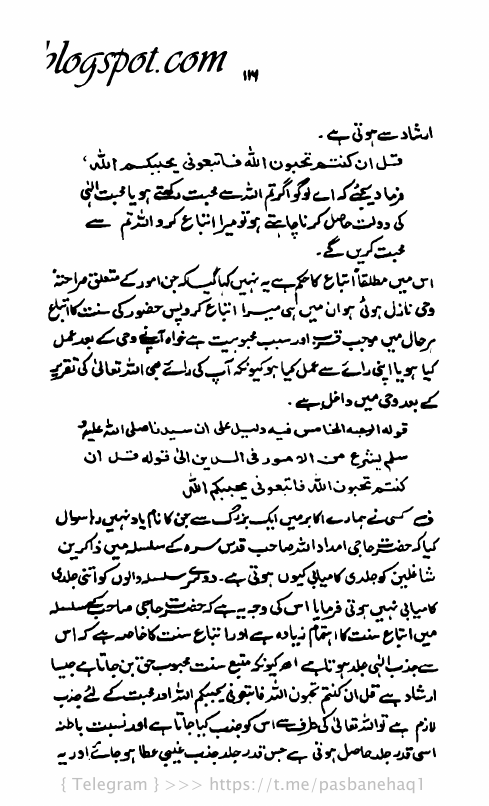 blogspot.com
۱۱۶
ارشاد سے ہوتی ہے۔
قل ان کنتم تحبون اللہ فاتبعونی یحببکم اللہ،
فرما دیجئے کہ اے لوگو اگر تم اللہ سے محبت رکھتے ہو یا محبت الٰہی
کی دولت حاصل کرنا چاہتے ہو تو میرا اتباع کرو اللہ تم سے
محبت کریں گے۔
اس میں مطلقاً اتباع کا حکم ہے یہ نہیں کہا گیا کہ جن امور کے متعلق صراحتہً
وحی نازل ہوئی ہو ان میں ہی میرا اتباع کرو پس حضور کی سنت کا اتباع
ہر حال میں موجب قرب اور سبب محبوبیت ہے خواہ آپ نے وحی کے بعد عمل
کیا ہو یا اپنی رائے سے عمل کیا ہو کیونکہ آپ کی رائے بھی اللہ تعالیٰ کی تقریر
کے بعد وحی میں داخل ہے۔
قولہ الوجہ الخامس فیہ دلیل علی ان سیدنا صلی اللہ علیہ و
سلم یشرع من الامور فی الدین الیٰ قولہ قل ان
کنتم تحبون اللہ فاتبعونی یحببکم اللہ
ف کسی نے ہمارے اکابر میں ایک بزرگ سے جن کا نام یاد نہیں رہا سوال
کیا کہ حضرت حاجی امداد اللہ صاحب قدس سرہ کے سلسلہ میں ذاکرین
شاغلین کو جلدی کامیابی کیوں ہوتی ہے۔ دوسرے سلسلہ والوں کو اتنی جلدی
کامیابی نہیں ہوتی فرمایا اس کی وجہ یہ ہے کہ حضرت حاجی صاحب کے سلسلہ
میں اتباع سنت کا اہتمام زیادہ ہے اور اتباع سنت کا خاصہ ہے کہ اس
سے جذب الٰہی جلد ہوتا ہے اھ کیونکہ متبع سنت محبوب حق بن جاتا ہے جیسا
ارشاد ہے قل ان کنتم تحبون اللہ فاتبعونی یحببکم اللہ اور محبت کے لئے جذب
لازم ہے تو اللہ تعالیٰ کی طرف سے اس کو جذب کیا جاتا ہے اور نسبت باطنہ
اسی قدر جلد حاصل ہوتی ہے جس قدر جلد جذب غیبی عطا ہو جائے اور یہ
{ Telegram } >>> https://t.me/pasbanehaq1